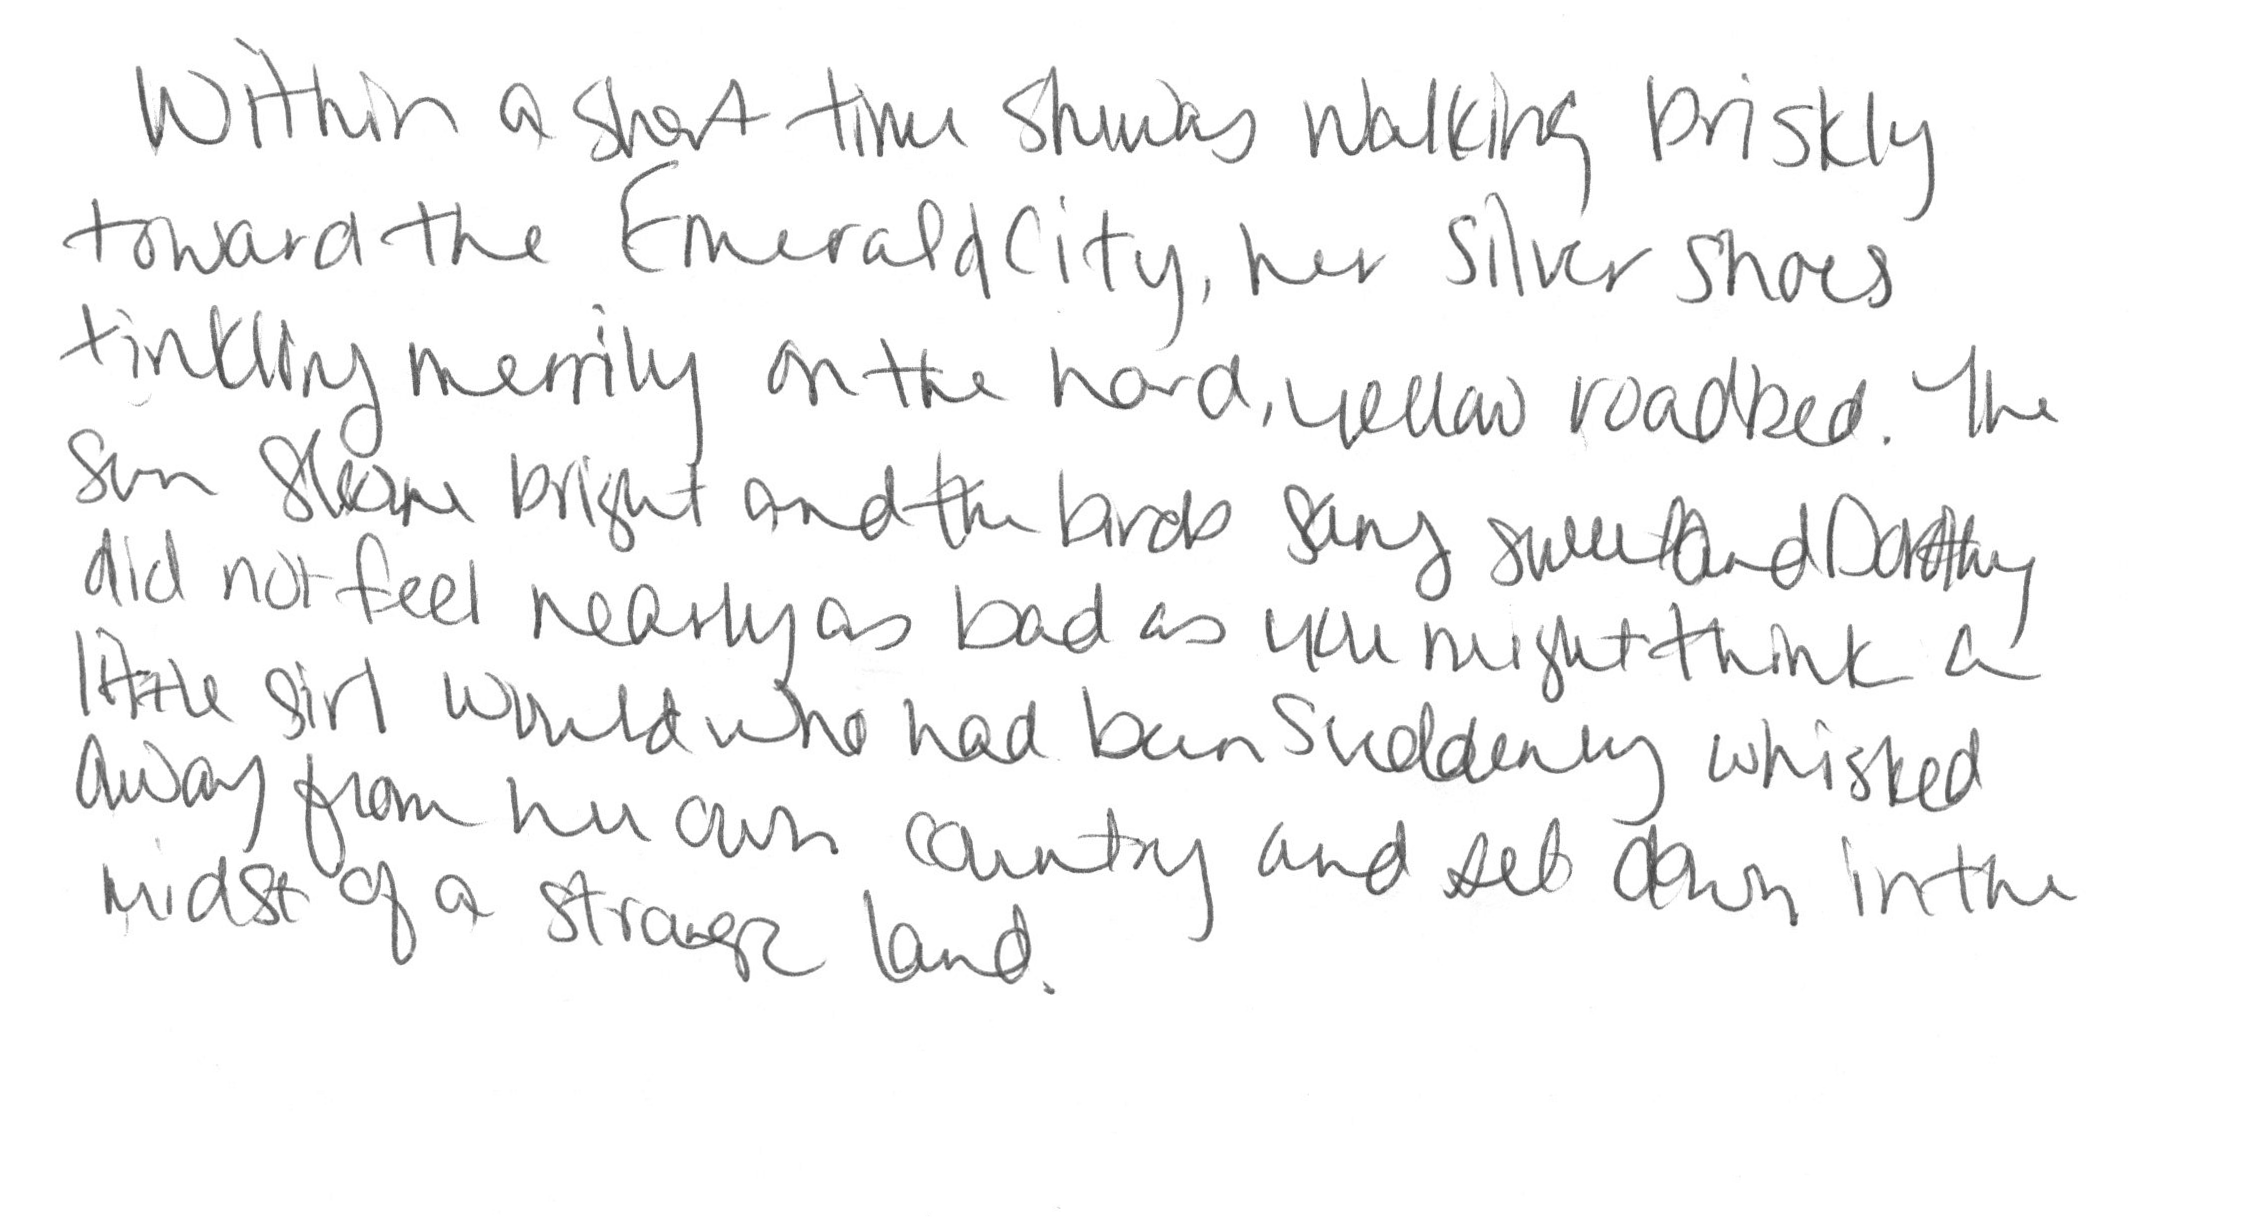 Within a short time she was walking briskly
toward the Emerald City, her silver shoes
tinkling merrily on the hard, yellow roadbed. The
sun shone bright and the birds sang sweet and Dorothy
did not feel nearly as bad as you might think a
little girl would who had been suddenly whisked
away from her own country and set down in the
midst of a strange land.